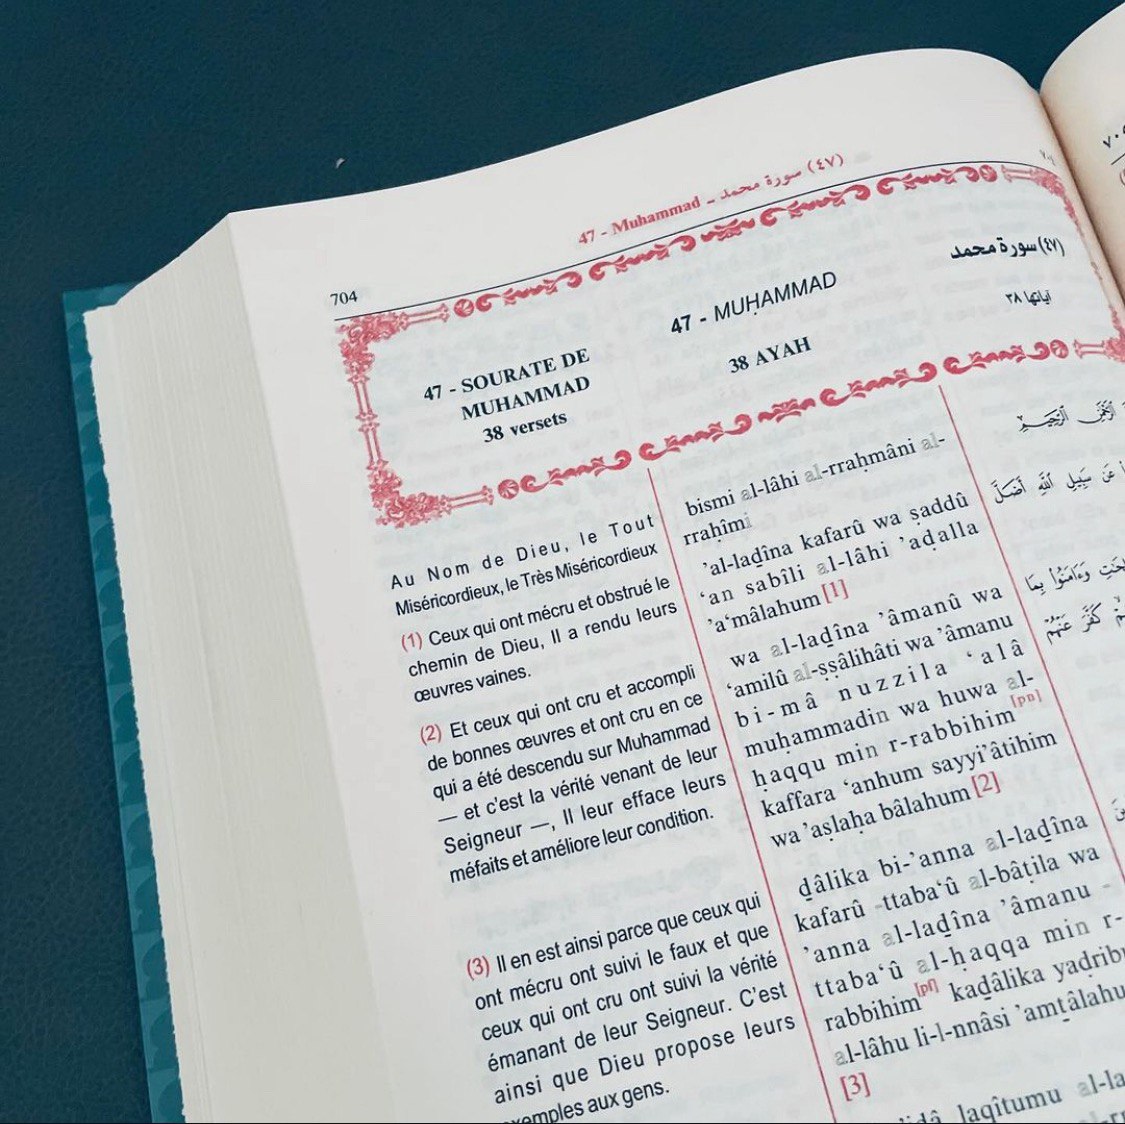 47 - Muhammad - سورة محمد (٤٧)
704
47 - SOURATE DE
MUHAMMAD
38 versets
47 - MUḤAMMAD
38 AYAH
(٤٧) سورة محمد
آياتها ٣٨
Au Nom de Dieu, le Tout
Miséricordieux, le Très Miséricordieux
(1) Ceux qui ont mécru et obstrué le
chemin de Dieu, Il a rendu leurs
œuvres vaines.
(2) Et ceux qui ont cru et accompli
de bonnes œuvres et ont cru en ce
qui a été descendu sur Muhammad
— et c'est la vérité venant de leur
Seigneur —, Il leur efface leurs
méfaits et améliore leur condition.
(3) Il en est ainsi parce que ceux qui
ont mécru ont suivi le faux et que
ceux qui ont cru ont suivi la vérité
émanant de leur Seigneur. C'est
ainsi que Dieu propose leurs
exemples aux gens.
bismi al-lâhi al-rraḥmâni al-
rraḥîmi
'al-laḏîna kafarû wa ṣaddû
'an sabîli al-lâhi 'aḍalla
'a'mâlahum [1]
wa al-laḏîna 'âmanû wa
'amilû al-ṣṣâlihâti wa 'âmanu
bi-mâ nuzzila 'alâ
muḥammadin wa huwa al-
ḥaqqu min r-rabbihim [pn]
kaffara 'anhum sayyi'âtihim
wa 'aṣlaḥa bâlahum [2]
ḏâlika bi-'anna al-laḏîna
kafarû -ttaba'û al-bâṭila wa
'anna al-laḏîna 'âmanu -
ttaba'û al-ḥaqqa min r-
rabbihim [pf] kaḏâlika yaḍribu
al-lâhu li-l-nnâsi 'amṯâlahu
[3]
laqîtumu al-la
الرَّحْمَٰنِ الرَّحِيمِ
عَن سَبِيلِ اللَّهِ أَضَلَّ
وَءَامَنُوا بِمَا
كَفَّرَ عَنْهُمْ